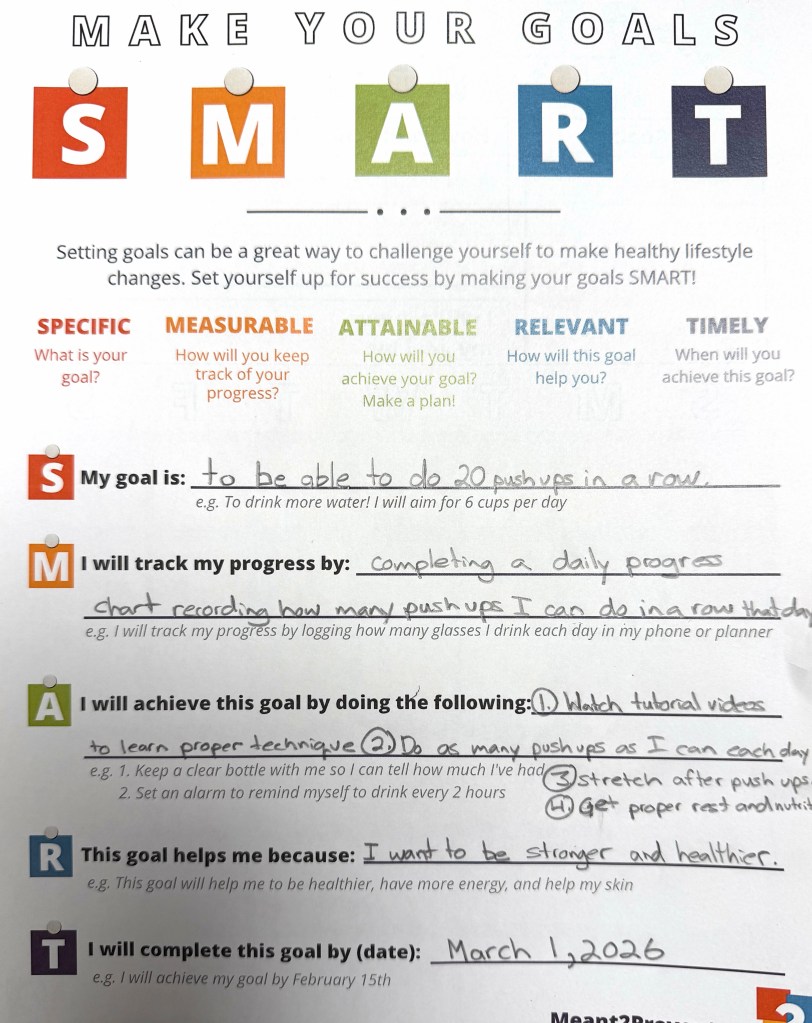 MAKE YOUR GOALS
S M A R T
Setting goals can be a great way to challenge yourself to make healthy lifestyle
changes. Set yourself up for success by making your goals SMART!
SPECIFIC MEASURABLE ATTAINABLE RELEVANT TIMELY
What is your How will you keep How will you How will this goal When will you
goal? track of your achieve your goal? help you? achieve this goal?
progress? Make a plan!
S My goal is: to be able to do 20 push ups in a row.
e.g. To drink more water! I will aim for 6 cups per day
M I will track my progress by: completing a daily progress
chart recording how many push ups I can do in a row that day
e.g. I will track my progress by logging how many glasses I drink each day in my phone or planner
A I will achieve this goal by doing the following: 1. Watch tutorial videos
to learn proper technique 2. Do as many push ups as I can each day
e.g. 1. Keep a clear bottle with me so I can tell how much I've had 3 stretch after push ups.
2. Set an alarm to remind myself to drink every 2 hours 4. Get proper rest and nutrit
R This goal helps me because: I want to be stronger and healthier.
e.g. This goal will help me to be healthier, have more energy, and help my skin
T I will complete this goal by (date): March 1, 2026
e.g. I will achieve my goal by February 15th
2